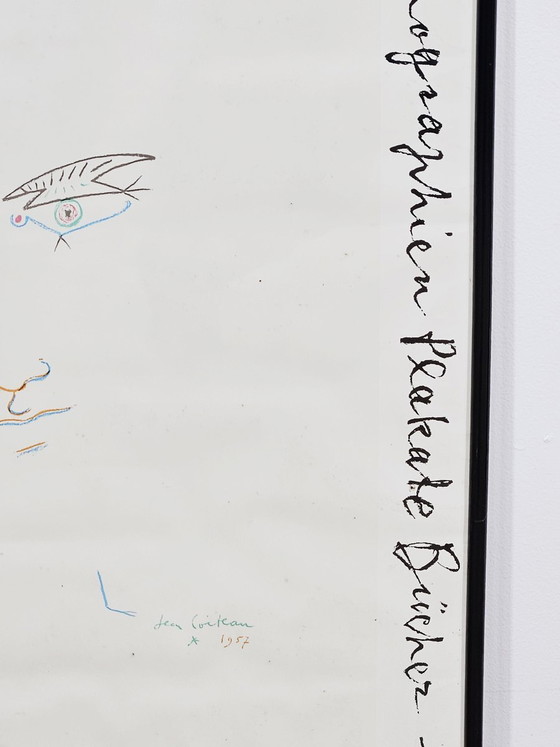 ographien Plakate Bücher -
Jean Cocteau
* 1957